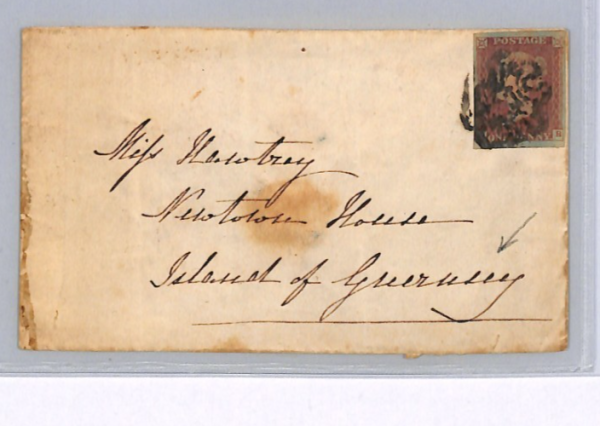 POSTAGE
Miss Hawtrey
Newtown House
Island of Guernsey